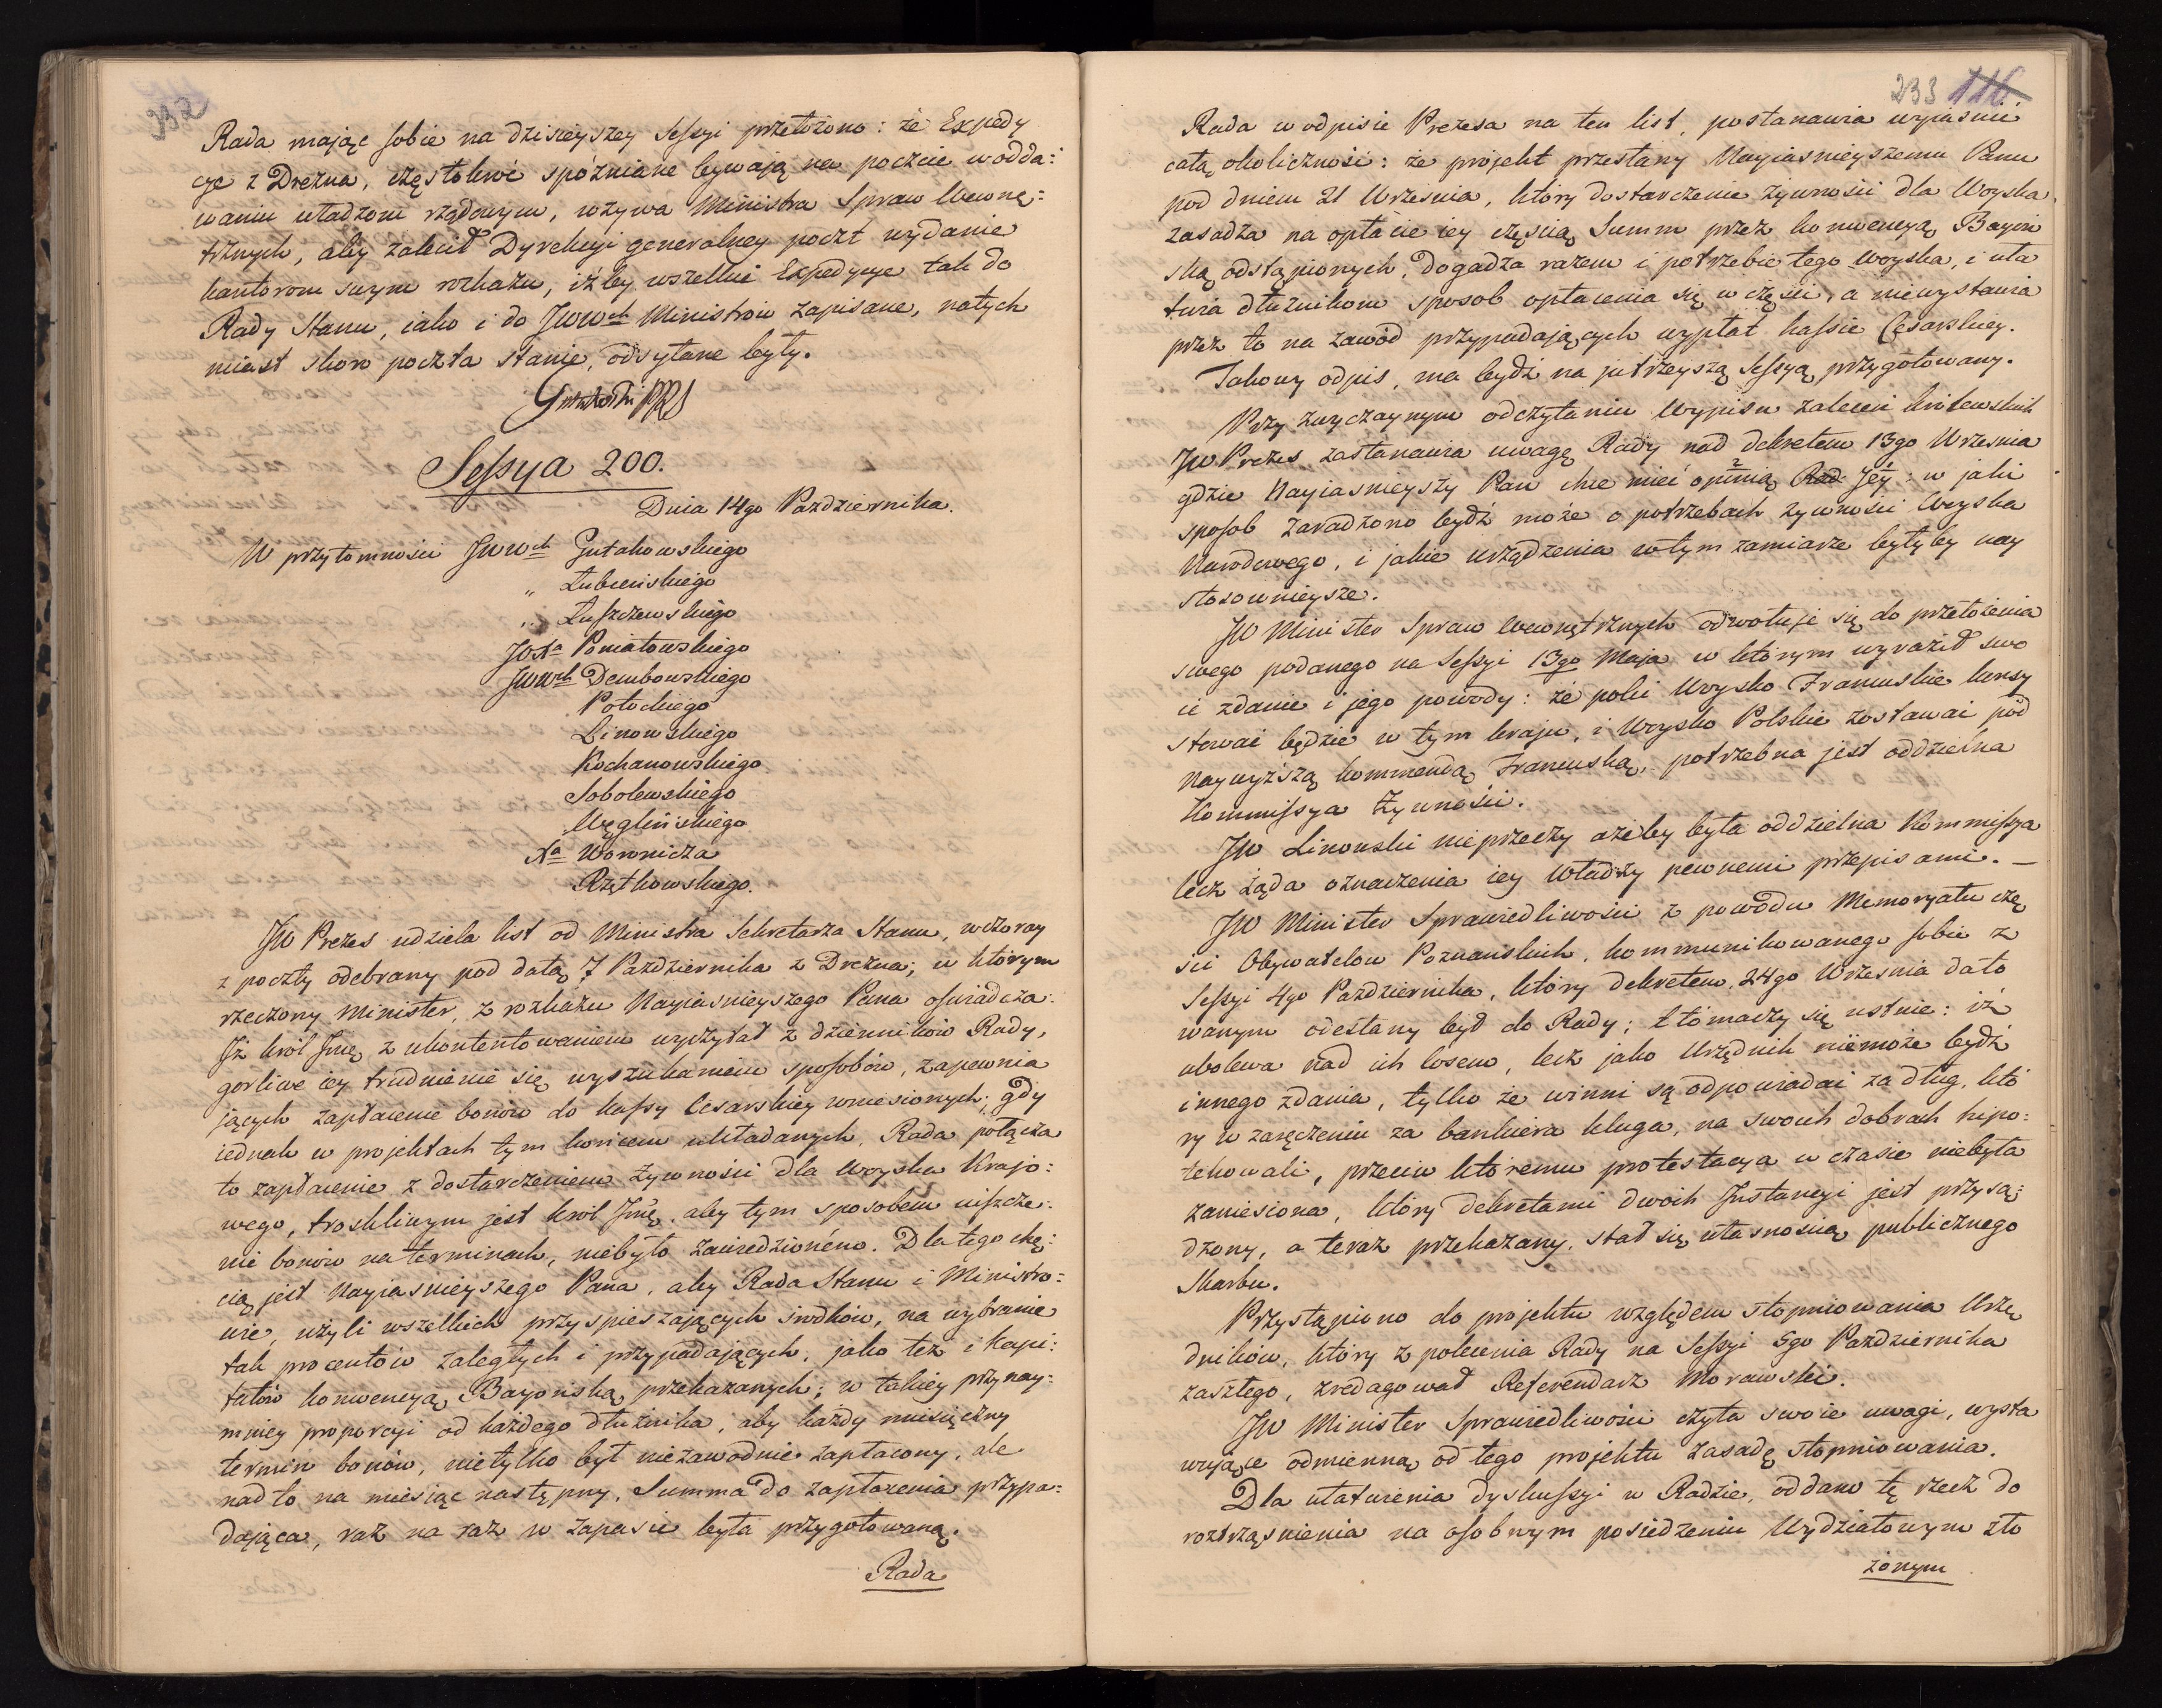 232
Rada mając sobie na dzisieyszey Sessyi przełożono: że Expedy
cye z Drezna, częstokroć spóźniane bywają na poczcie w odda:
waniu władzom rządowym, wzywa Ministra Spraw Wewnę:
trznych, aby zalecił Dyrekcyi generalney poczt wydanie
kantorom swym rozkazu, iżby wszelkie Expedycye tak do
Rady Stanu, iako i do JWWch Ministrów zapisane, natych
miast skoro poczta stanie, odsyłane były.
Gutakowski PRS
Sessya 200.
Dnia 14go Pazdziernika.
W przytomności JWWch Gutakowskiego
„ Łubieńskiego
„ Łuszczewskiego
JOXa Poniatowskiego
JWWch Dembowskiego
Potockiego
Linowskiego
Kochanowskiego
Sobolewskiego
Węglińskiego
Xa Woronicza
Rzętkowskiego.
JW Prezes udziela list od Ministra Sekretarza Stanu, wczoray
z poczty odebrany pod datą 7 Pazdziernika z Drezna; w którym
rzeczony Minister, z rozkazu Nayiasnieyszego Pana oświadcza:
Iż król Jmć z ukontentowaniem wyczytał z dzienników Rady,
gorliwe iey trudnienie się wyszukaniem sposobów, zapewnia
jących zapłacenie bonów do kassy Cesarskiey wniesionych; gdy
iednak w projektach tym końcem układanych, Rada połącza
to zapłacenie z dostarczeniem żywności dla Woyska Krajo:
wego, troskliwym jest król Jmć, aby tym sposobem uiszcze:
nie bonów na terminach, niebyło zawiedzionéno. Dla tego chę:
cią jest Nayiasnieyszego Pana, aby Rada Stanu i Ministro:
wie, użyli wszelkich przyspieszających środków, na wybranie
tak procentów zaległych i przypadających, jako też i kapi:
tałów konwencyą Bayońską przekazanych; w takiey przynay:
mniey proporcyi od każdego dłużnika, aby każdy miesięczny
termin bonów, nietylko był niezawodnie zapłacony, ale
nad to na miesiąc następny, Summa do zapłacenia przypa:
dająca, raz na raz w zapasie była przygotowaną.
Rada
233 116
Rada w odpisie Prezesa na ten list, postanawia wyiaśnić
całą okoliczność: że projekt przesłany Nayiasnieyszemu Panu
pod dniem 21 Września, który dostarczenie żywności dla Woyska
zasadza na opłacie iey częścią Summ przez konwencyą Bayoń
ską odstąpionych, dogadza razem i potrzebie tego woyska, i uła
twia dłużnikom sposob opłacenia się w części, a niewystawia
przez to na zawód przypadających wypłat kassie Cesarskiey.
Takowy odpis, ma bydź na jutrzeyszą Sessyą przygotowany.
Przy zwyczaynym odczytaniu Wypisu zaleceń krolewskich
JW Prezes zastanawia uwagę Rady nad dekretem 13go Września
gdzie Nayiasnieyszy Pan chce mieć opinią Rad Jey: w jaki
sposob zaradzono bydź może o potrzebach żywności Woyska
Narodowego, i jakie urządzenia w tym zamiarze byłyby nay
stosownieysze.
JW Minister Spraw Wewnętrznych odwołuje się do przełożenia
swego podanego na Sessyi 13go Maja w którym wyraził swo
ie zdanie i jego powody: że poki Woysko Francuskie konsy
stować będzie w tym kraju, i Woysko Polskie zostawać pod
naywyższą kommendą Francuską, potrzebna jest oddzielna
Kommissya Żywności.
JW Linowski nieprzeczy ażeby była oddzielna Kommissya
lecz żąda oznaczenia iey Władzy pewnemi przepisami. —
JW Minister Sprawiedliwości z powodu Memoryału czę
ści Obywatelow Poznanskich, kommunikowanego sobie z
Sessyi 4go Pazdziernika, który dekretem 24go Września dato
wanym odesłany był do Rady; tłómaczy się ustnie: iż
ubolewa nad ich losem, lecz jako Urzędnik niemoże bydź
innego zdania, tylko że winni są odpowiadać za dług, któ
ry w zaręczeniu za bankiera kluga, na swoich dobrach hipo:
tekowali, przeciw któremu protestacya w czasie niebyła
zaniesiona, który dekretami dwóch Instancyi jest przysą:
dzony, a teraz przekazany, stał się własnością publicznego
Skarbu.
Przystąpiono do projektu względem stopniowania Urzę
dników, który z polecenia Rady na Sessyi 5go Pazdziernika
zaszłego, zredagował Referendarz Morawski.
JW Minister Sprawiedliwości czyta swoie uwagi, wysta
wujące odmienną od tego projektu zasadę stopniowania.
Dla ułatwienia dyskussyi w Radzie, oddano tę rzecz do
roztrząśnienia na osobnym posiedzeniu Wydziałowym zło
żonym